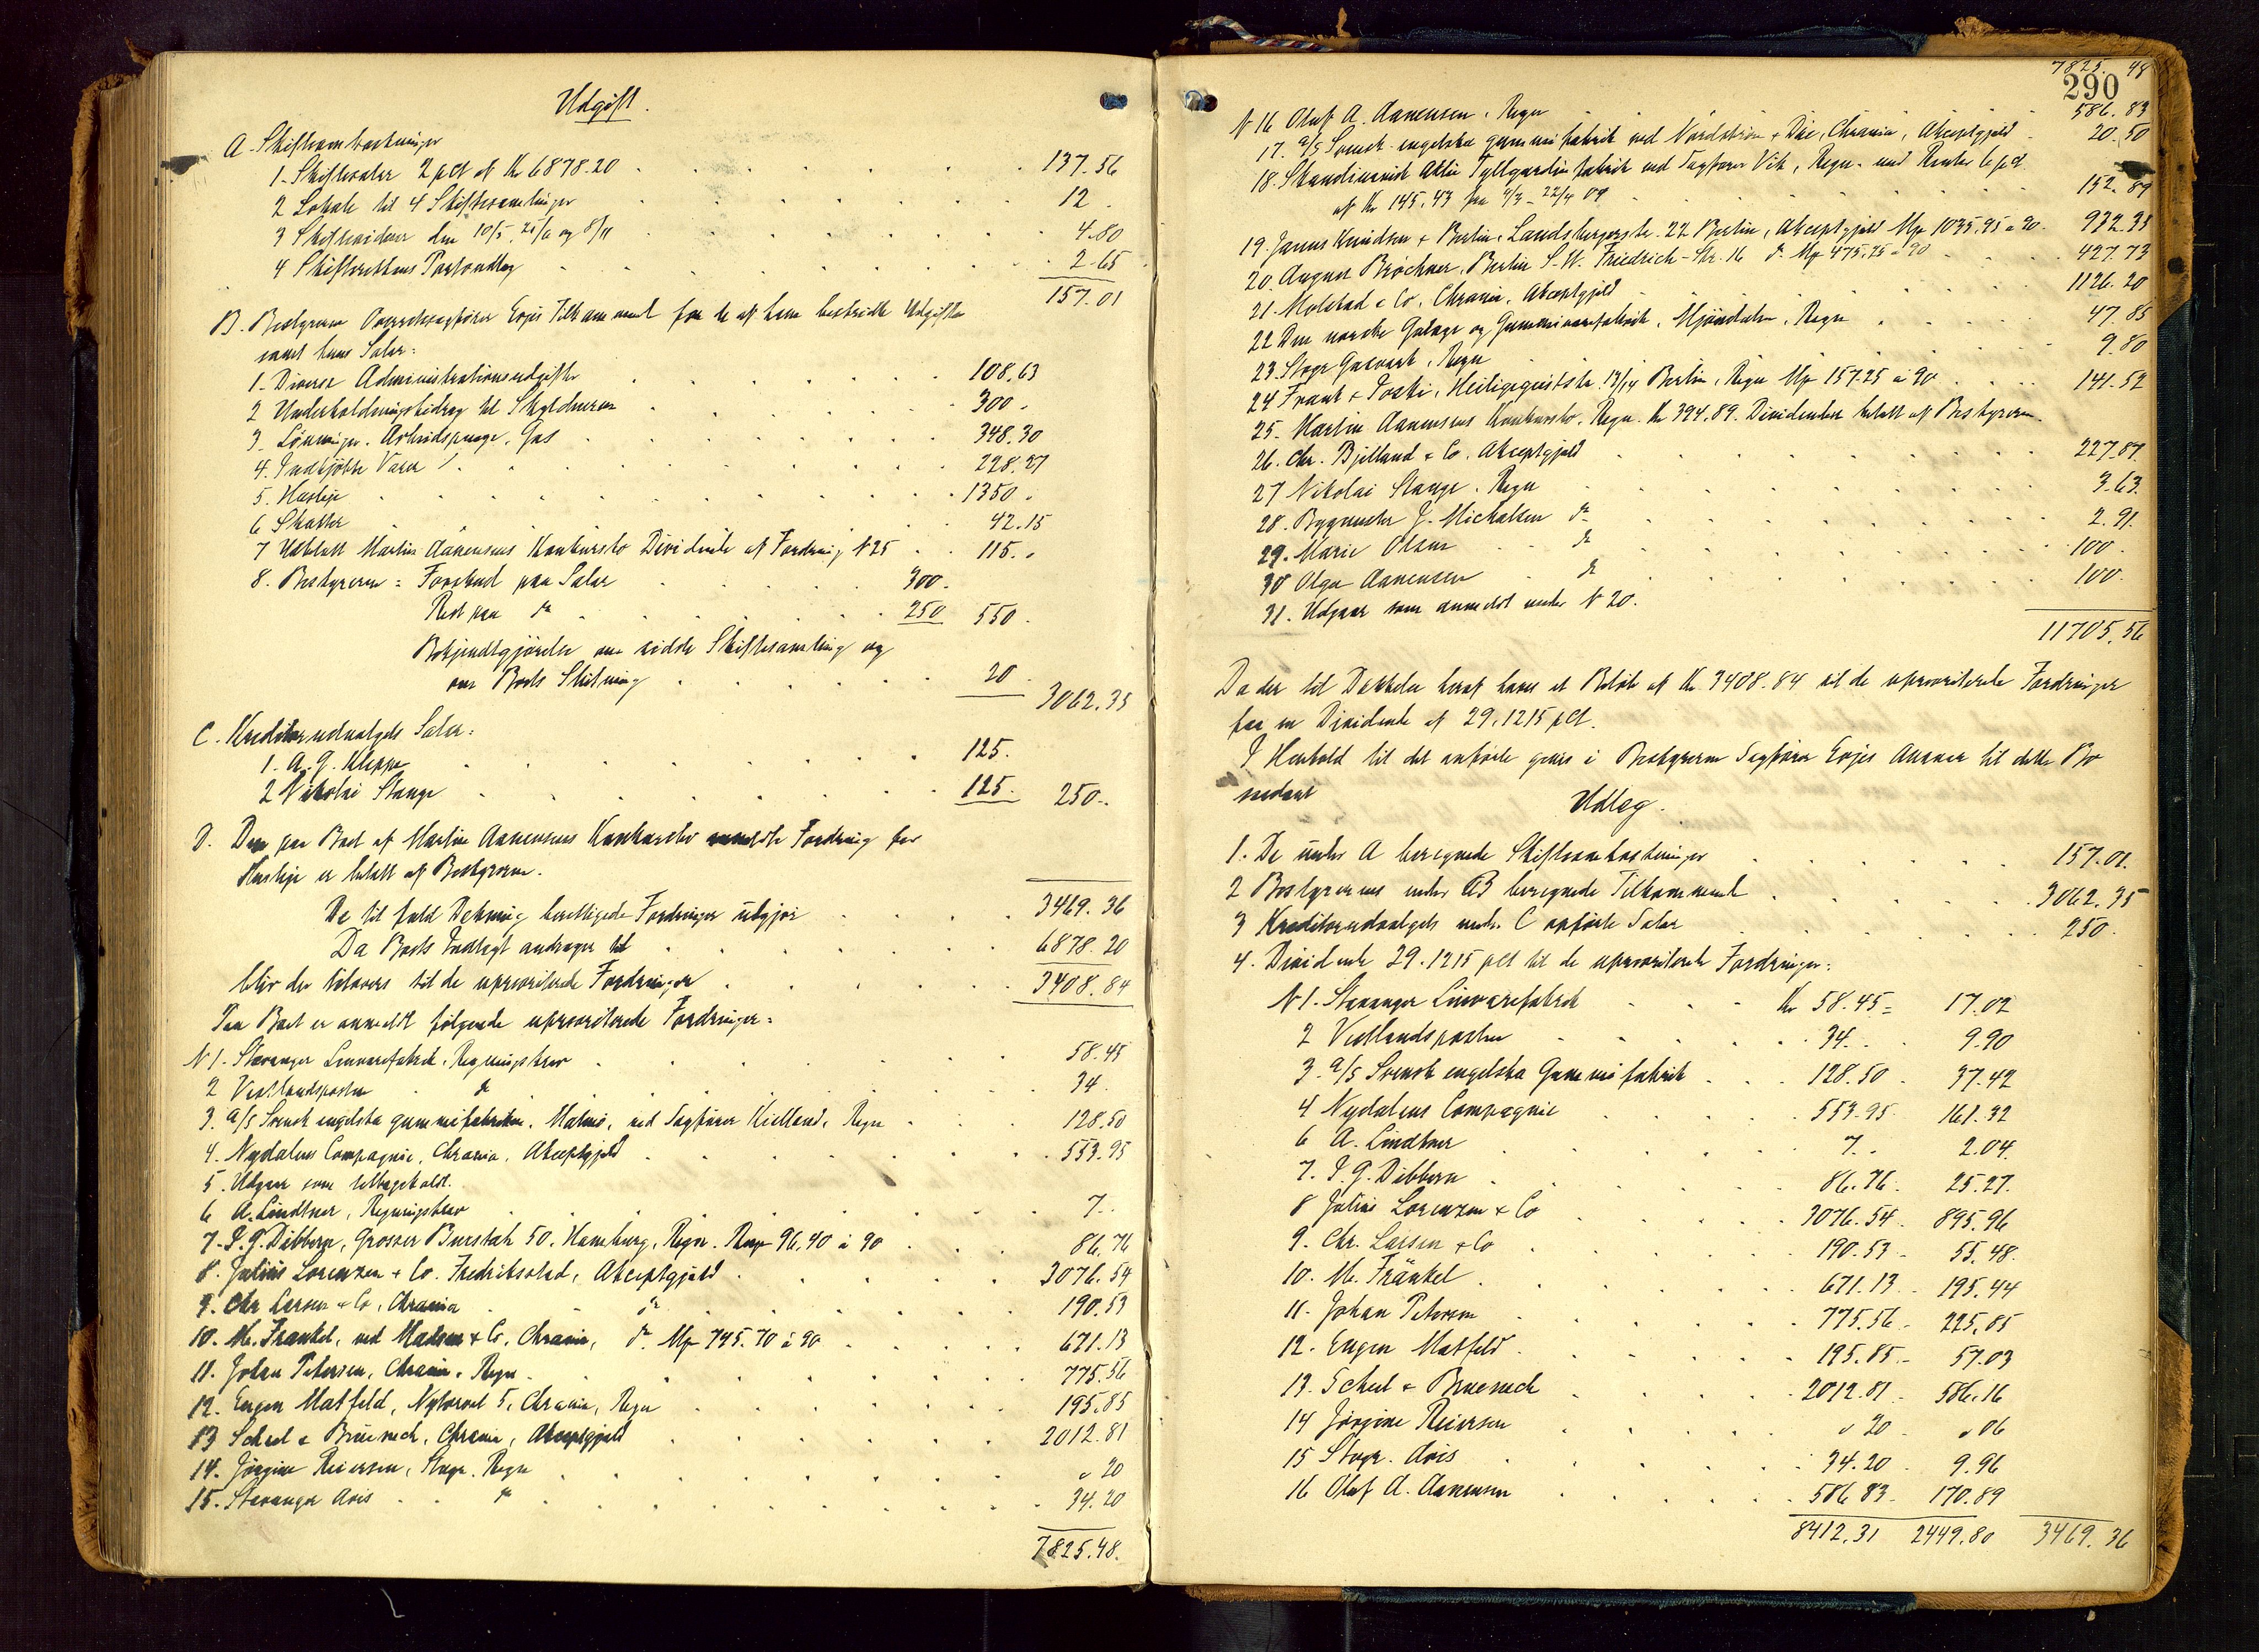 Udgift.
A. Skifteomkostninger
1. Skiftesalær 2 pct af Kr 6878.20 137.56
2 Lokale til 4 Skiftesamlinger 12
3 Skiftevidner den 10/5, 25/6 og 8/11 4.80
4 Skifterettens Portoudlæg 2.65
157.01
B. Bestyreren Overretssagfører Eojes Tilkommende for de af ham bestridte Udgifter
samt hans Salær:
1. Diverse Administrationsudgifter 108.63
2 Underholdningsbidrag til Skyldneren 300.
3. Lønninger. Arbeidspenge. Gas 348.30
4. Indkjøbte Varer 228.27
5. Husleje 1350.
6 Skatter 42.15
7 Udbetalt Martin Aanensens Konkursbo Dividende af Fordring N 25 115.
8. Bestyreren: Forskud paa Salær 300.
Rest paa do 250 550.
Bekjendtgjørelse om sidste Skiftesamling og
om Boets Slutning 20
3062.35
C. Kreditorudvalgets Salær:
1. A. G. Kleppe 125.
2 Nikolai Stange 125. 250.
D. Den paa Boet af Martin Aanensens Konkursbo anmeldte Fordring for
Husleje er betalt af Bestyreren.
De til fuld Dekning berettigede Fordringer udgjør 3469.36
Da Boets Indtægt andrager til 6878.20
bliver der tilovers til de uprioriterede Fordringer 3408.84
Paa Boet er anmeldt følgende uprioriterede Fordringer:
N 1. Stavanger Linvarefabrik. Regningskrav 58.45
2 Vestlandsposten do 34.
3. A/S Svensk engelska gummifabriken, Malmö, ved Sagfører Kielland, Regn 128.50
4. Nydalens Compagnie, Chrania, Akceptgjeld 553.95
5. Udgaar som tilbagekaldt.
6 A. Lindtner, Regningskrav 7.
7. P. G. Dibbern, Grosser Burstah 50, Hamburg, Regn. Rmp 96.40 à 90 86.76
8. Julius Lorenzen & Co. Fredriksstad, Akceptgjeld 3076.54
9. Chr Larsen & Co, Chrania do 190.53
10. M. Frankel, ved Madsen & Co. Chrania, do Mp 745.70 à 90 671.13
11. Johan Petersen, Chrania. Regn 775.56
12. Eugen Matfeld, Nytorvet 5, Chrania, Regn 195.85
13 Scheel & Bruenech, Chrania, Akceptgjeld 2012.81
14. Jørgine Reiersen, Stvgr. Regn " 20
15. Stavanger Avis do 34.20
7825.48.
7825.48
290
N 16 Oluf A. Aanensen, Regn 586.83
17. A/S Svensk-engelska gummifabrik ved Nordström & Due, Chrania, Akceptgjeld 20.50
18. Skandinavisk Aktie Tyllgardinfabrik ved Sagfører Vik, Regn. med Renter 6 pct
af Kr 145.43 fra 4/3 - 22/4 09 152.89
19. Janus Knudsen & Berlin, Landsbergerstr. 22 Berlin, Akceptgjeld Mp 1035.95 à 90. 932.35
20. August Bröchner, Berlin S.W. Friedrich-Str. 16 do Mp 475.25 à 90 427.73
21. Molstad & Co, Chrania, Akceptgjeld 1126.20
22 Den norske Galoge og Gummivarefabrik, Mjøndalen, Regn 47.85
23 Stvgr Gasverk, Regn 9.80
24 Frank & Poski, Heiligegeiststr. 13/14 Berlin, Regn Mp 157.25 à 90 141.52
25. Martin Aanensens Konkursbo. Regn. Kr 394.89. Dividenden betalt af Bestyreren
26. Chr. Bjelland & Co. Akceptgjeld 227.87.
27 Nikolai Stange. Regn 3.63
28. Bygmester J. Michalsen do 2.91.
29. Marie Olsen do 100.
30 Olga Aanensen do 100.
31. Udgaar som anmeldt under N 20.
11705.56
Da der til Dækkelse heraf haves et Beløb af Kr. 3408.84 vil de uprioriterede Fordringer
faa en Dividende af 29.1215 pct.
I Henhold til det anførte gives i Bestyreren Sagfører Eojes Ansvar til dette Bo
saadant
Udlæg.
1. De under A beregnede Skifteomkostninger 157.01.
2 Bestyrerens under B beregnede Tilkommende 3062.35
3 Kreditorudvalgets under C opførte Salær 250.
4. Dividende 29.1215 pct til de uprioriterede Fordringer:
N 1. Stavanger Linvarefabrik Kr 58.45 = 17.02
2 Vestlandsposten 34. 9.90
3. A/S Svensk engelska Gummifabrik 128.50 37.42
4 Nydalens Compagnie 553.95 161.32
6 A. Lindtner 7. 2.04
7. P. G. Dibbern 86.76 25.27.
8 Julius Lorenzen & Co 3076.54 895.96
9. Chr. Larsen & Co 190.53 55.48.
10. M. Fränkel 671.13 195.44
11. Johan Petersen 775.56 225.85
12. Eugen Matfeld 195.85 57.03
13. Scheel & Bruenech 2012.81 586.16
14 Jørgine Reiersen " 20 " 06
15 Stvgr. Avis 34.20 9.96
16 Oluf A. Aanensen 586.83 170.89
8412.31 2449.80 3469.36